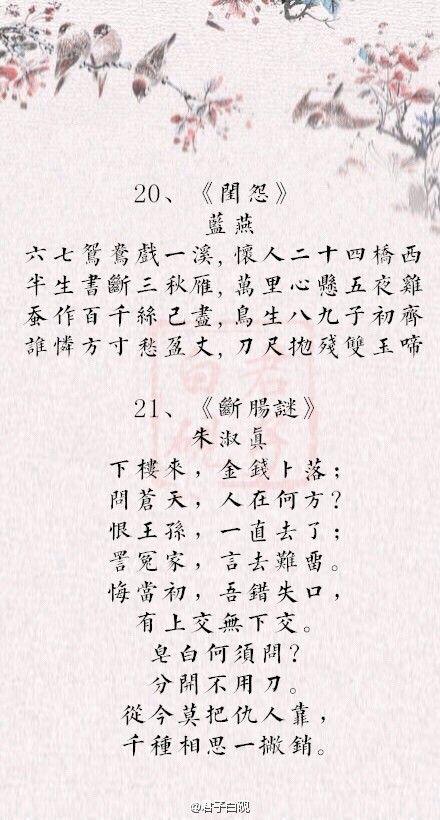 20、《閨怨》
藍燕
六七鴛鴦戲一溪,懷人二十四橋西
半生書斷三秋雁,萬里心懸五夜雞
蚕作百千絲已盡,鳥生八九子初齊
誰憐方寸愁盈丈,刀尺拋殘雙玉啼
21、《斷腸謎》
朱淑真
下樓來,金錢卜落;
問蒼天,人在何方?
恨王孫,一直去了;
詈冤家,言去難留。
悔當初,吾錯失口,
有上交無下交。
皂白何須問?
分開不用刀。
從今莫把仇人靠,
千種相思一撇銷。
@君子白硯